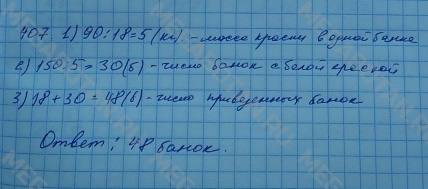 407 1) 90:18=5 (кг) - масса краски в одной банке
2) 150:5=30(б) - число банок с белой краской
3) 18+30=48(б) - число приведенных банок
Ответ: 48 банок.